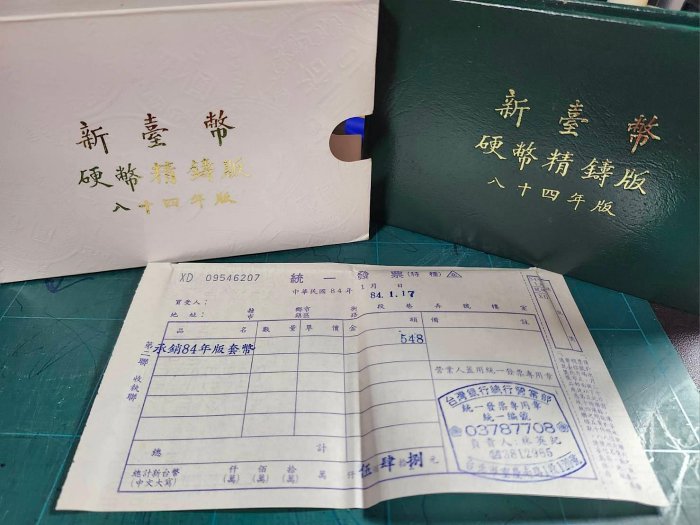 新臺幣
硬幣精鑄版
八十四年版
新臺幣
硬幣精鑄版
八十四年版
XD 09546207 統一發票(特種)
中華民國84年 1月 日
84.1.17
買受人：
地址： 縣市 鄉鎮市區 路街 段 巷 弄 號 樓 室
品名 數量 單價 金額 備註
承銷84年版套幣 548
營業人蓋用統一發票專用章
台灣銀行總行營業部
統一發票專用章
統一編號
03787708
負責人：
3812965
總計
總計新台幣
(中文大寫)
仟(萬) 佰(萬) 拾(萬) 萬 仟 伍 肆拾 捌 元
第二聯
收執聯